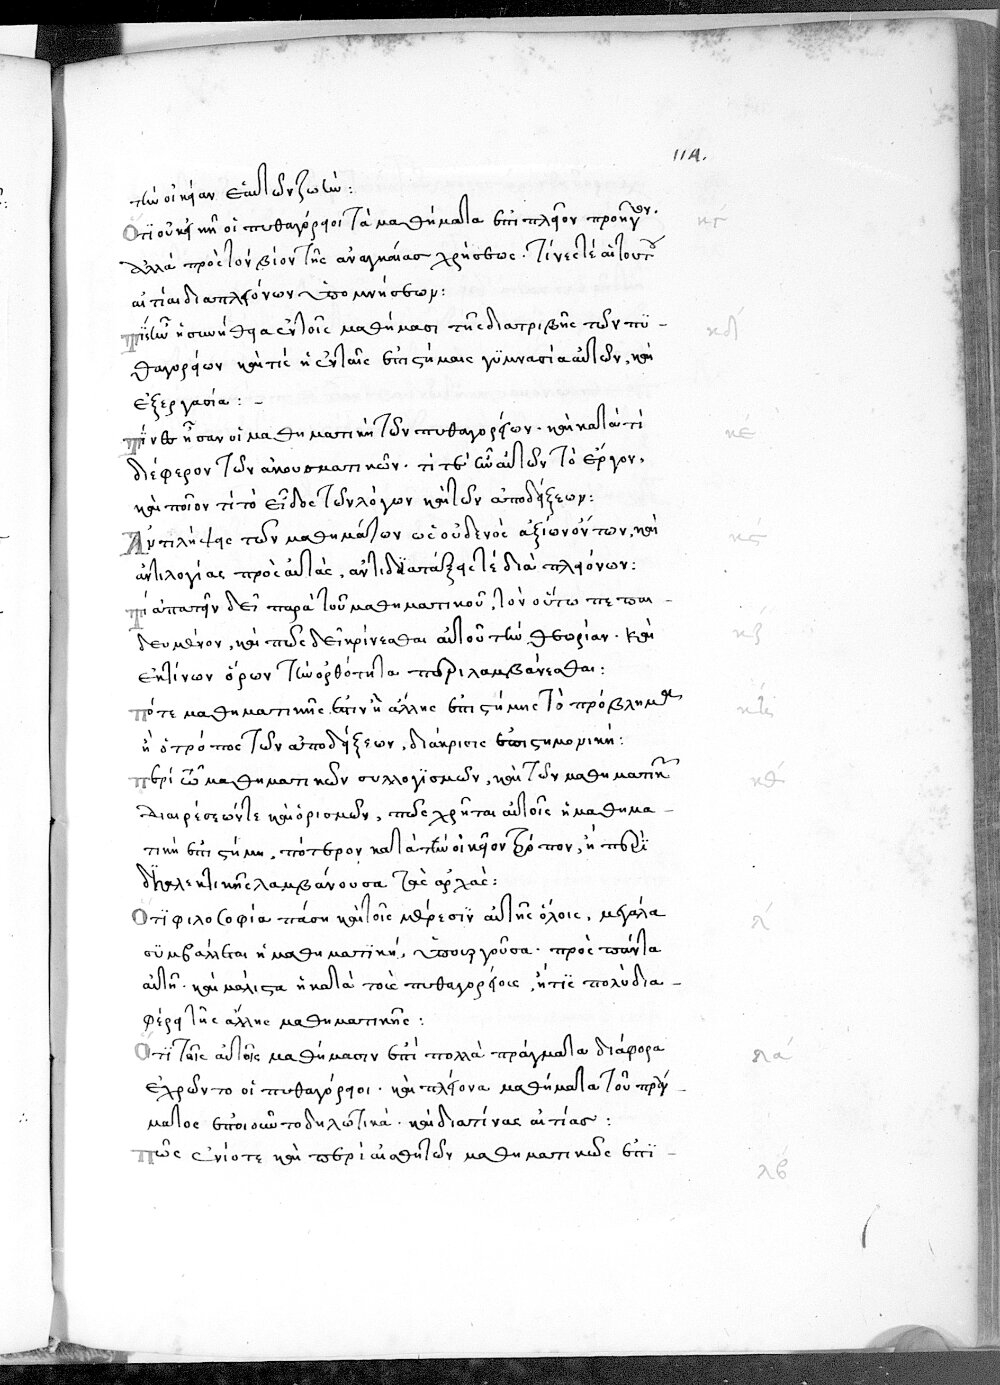 114.
τὴν οἰκείαν ἑαυτῶν ζωήν :
Ὅτι οὐκ εἰκῆ οἱ πυθαγόρειοι τὰ μαθήματα ἐπὶ πλεῖον προῆγον.
κγ
ἀλλὰ πρὸς τὸν βίον τῆς ἀναγκαίας χρήσεως. τίνες τέ αἱ τούτου
αἰτίαι διὰ πλειόνων ὑπομνήσεων :
Τίς ἦν ἡ συνήθεια ἐν τοῖς μαθήμασι τῆς διατριβῆς τῶν πυ -
κδ
θαγορείων καὶ τίς ἡ ἐν ταῖς ἐπιστήμαις γυμνασία αὐτῶν, καὶ
ἐξεργασία : -
Τίνες ἦσαν οἱ μαθηματικοὶ τῶν πυθαγορείων. καὶ κατὰ τί
κε
διέφερον τῶν ἀκουσματικῶν. τί τε ἦν αὐτῶν τὸ ἔργον,
καὶ ποῖον τί τὸ εἶδος τῶν λόγων καὶ τῶν ἀποδείξεων :
Ἀντιλήψεις τῶν μαθημάτων ὡς οὐδενὸς ἀξίων ὄντων, καὶ
κς
ἀντιλογίας πρὸς αὐτὰς, ἀντιδιατάξεις τέ διὰ πλειόνων :
Τί ἀπαιτεῖν δεῖ παρὰ τοῦ μαθηματικοῦ, τὸν οὕτω πεπαι -
κζ
δευμένον, καὶ πῶς δεῖ κρίνεσθαι αὐτοῦ τὴν θεωρίαν. καὶ
ἐκ τίνων ὅρων τὴν ὀρθότητα περιλαμβάνεσθαι :
πότε μαθηματικῆς ἐστιν ἢ ἄλλης ἐπιστήμης τὸ πρόβλημα
κη
ἢ ὁ τρόπος τῶν ἀποδείξεων, διάκρισις ἐπιστημονική :
περὶ τῶν μαθηματικῶν συλλογισμῶν, καὶ τῶν μαθηματικῶν
κθ
διαιρέσεών τε καὶ ὁρισμῶν, πῶς χρῆται αὐτοῖς ἡ μαθημα -
τικὴ ἐπιστήμη, πότερον κατὰ τὴν οἰκεῖον τρόπον, ἢ περὶ
διαλεκτικῆς λαμβάνουσα τὰς ἀρχὰς :
Ὅτι φιλοσοφία πάσῃ καὶ τοῖς μέρεσιν αὐτῆς ὅλοις, μεγάλα
λ
συμβάλλεται ἡ μαθηματικὴ, ὑπουργοῦσα. πρὸς πάντα
αὐτῇ. καὶ μάλιστα ἡ κατὰ τοὺς πυθαγορείους, ἥτις πολὺ δια -
φέρει τῆς ἄλλης μαθηματικῆς :
Ὅτι τοῖς αὐτοῖς μαθήμασιν ἐπὶ πολλὰ πράγματα διάφορα
λα
ἐχρῶντο οἱ πυθαγόρειοι. καὶ πλείονα μαθήματα τοῦ πράγ -
ματος ἐποιοῦντο δηλωτικά. καὶ διὰ τίνας αἰτίας :
πῶς ἐνίοτε καὶ περὶ αἰσθητῶν μαθηματικῶς ἐπι -
λβ